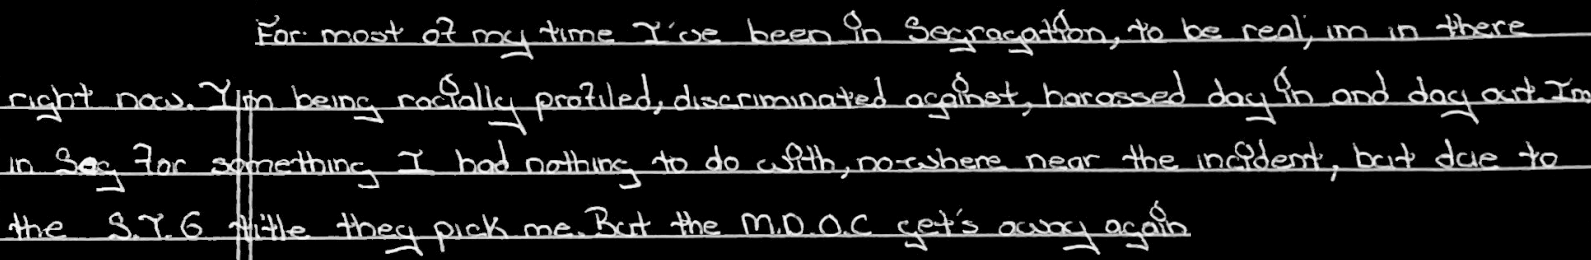 For most of my time I've been in Segragation, to be real, im in there
right now. I'm being racially profiled, discriminated against, harassed day in and day out. Im
in Seg for something I had nothing to do with, no-where near the incident, but due to
the S.T.G title they pick me. But the M.D.O.C get's away again